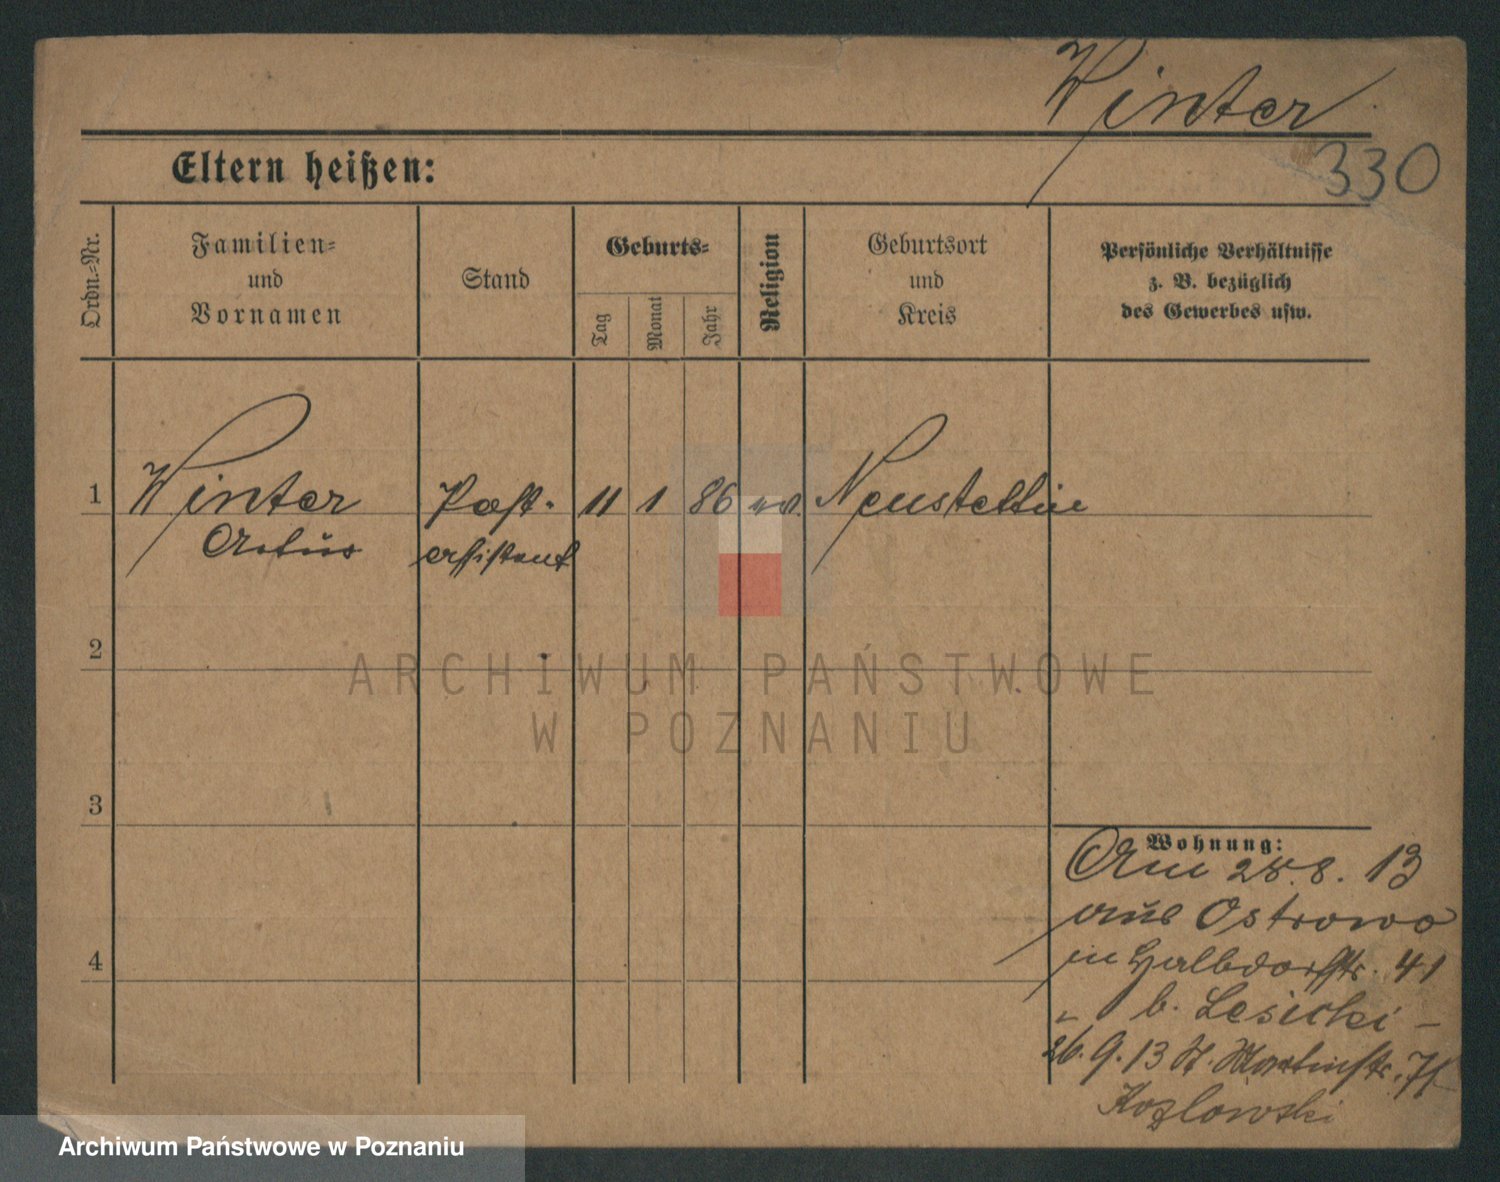 Winter
330
Eltern heißen:
Ordn.=Nr.
Familien=
und
Vornamen
Stand
Geburts=
Tag
Monat
Jahr
Religion
Geburtsort
und
Kreis
Persönliche Verhältnisse
z. B. bezüglich
des Gewerbes usw.
1
Winter
Artus
Post-
assistent
11
1
86
ev.
Neustettin
2
3
4
Wohnung:
Am 28.8. 13
aus Ostrowo
in Halbdorfstr. 41
b. Lesicki –
26. 9. 13 St. Martinstr.
Kozlowski
ARCHIWUM PAŃSTWOWE
W POZNANIU
Archiwum Państwowe w Poznaniu